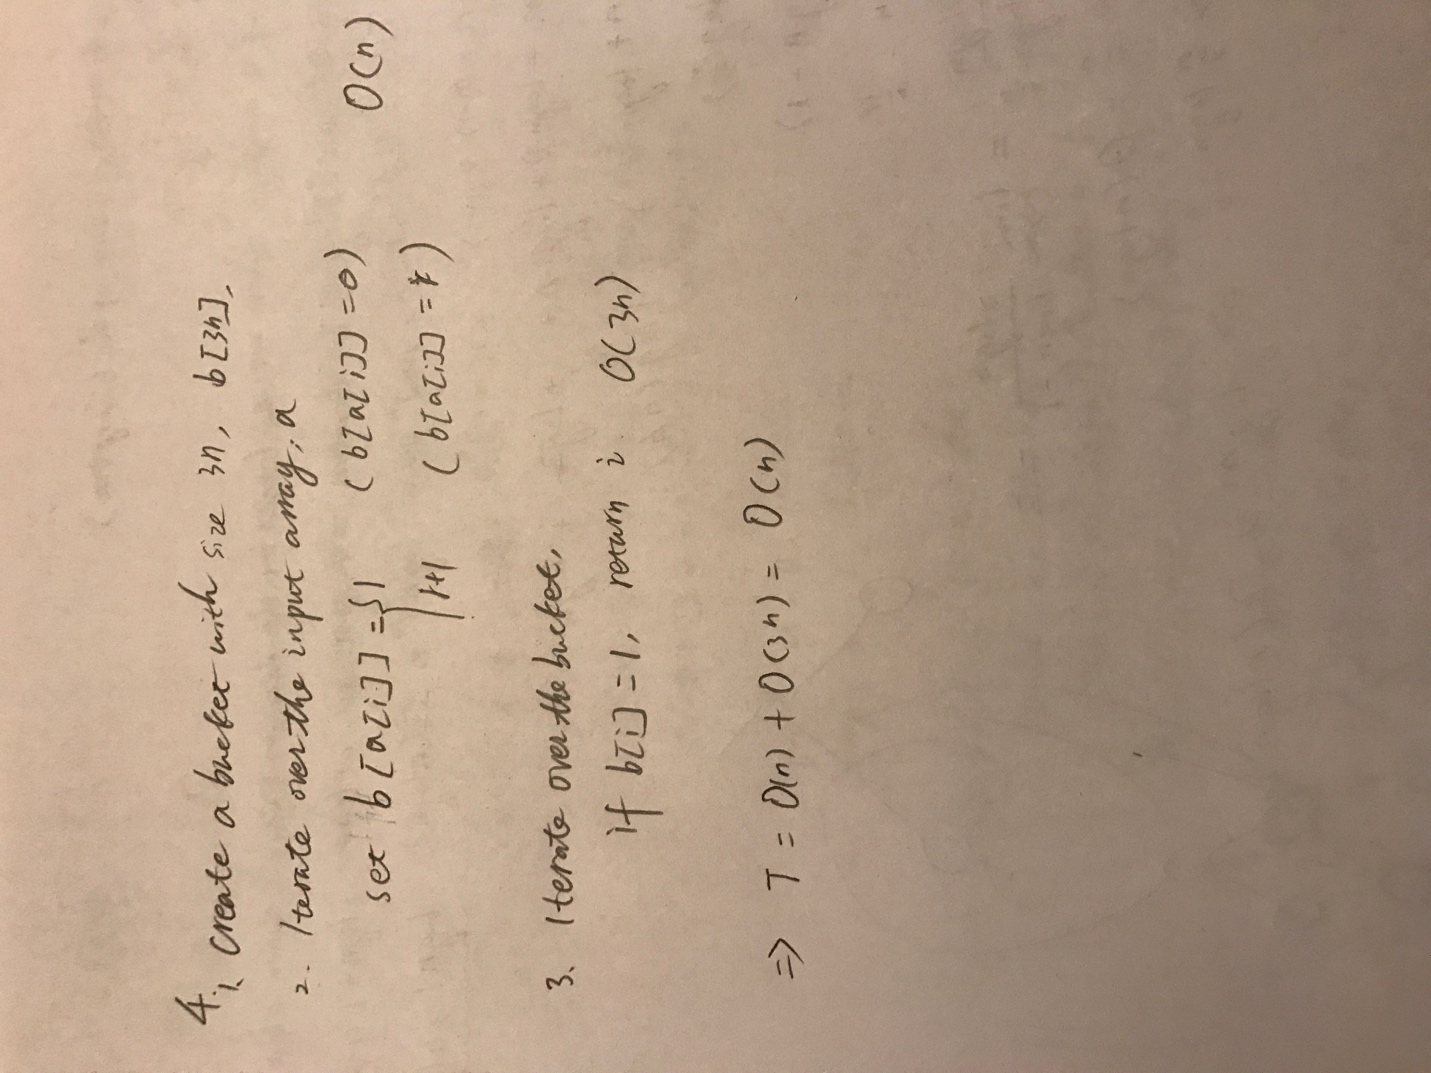 4.
1. Create a bucket with size 3n, b[3n].
2. Iterate over the input array, a
set b[a[i]] = { 1 (b[a[i]] = 0) O(n)
r+1 (b[a[i]] = r)
3. Iterate over the bucket,
if b[i] = 1, return i. O(3n)
=> T = O(n) + O(3n) = O(n)